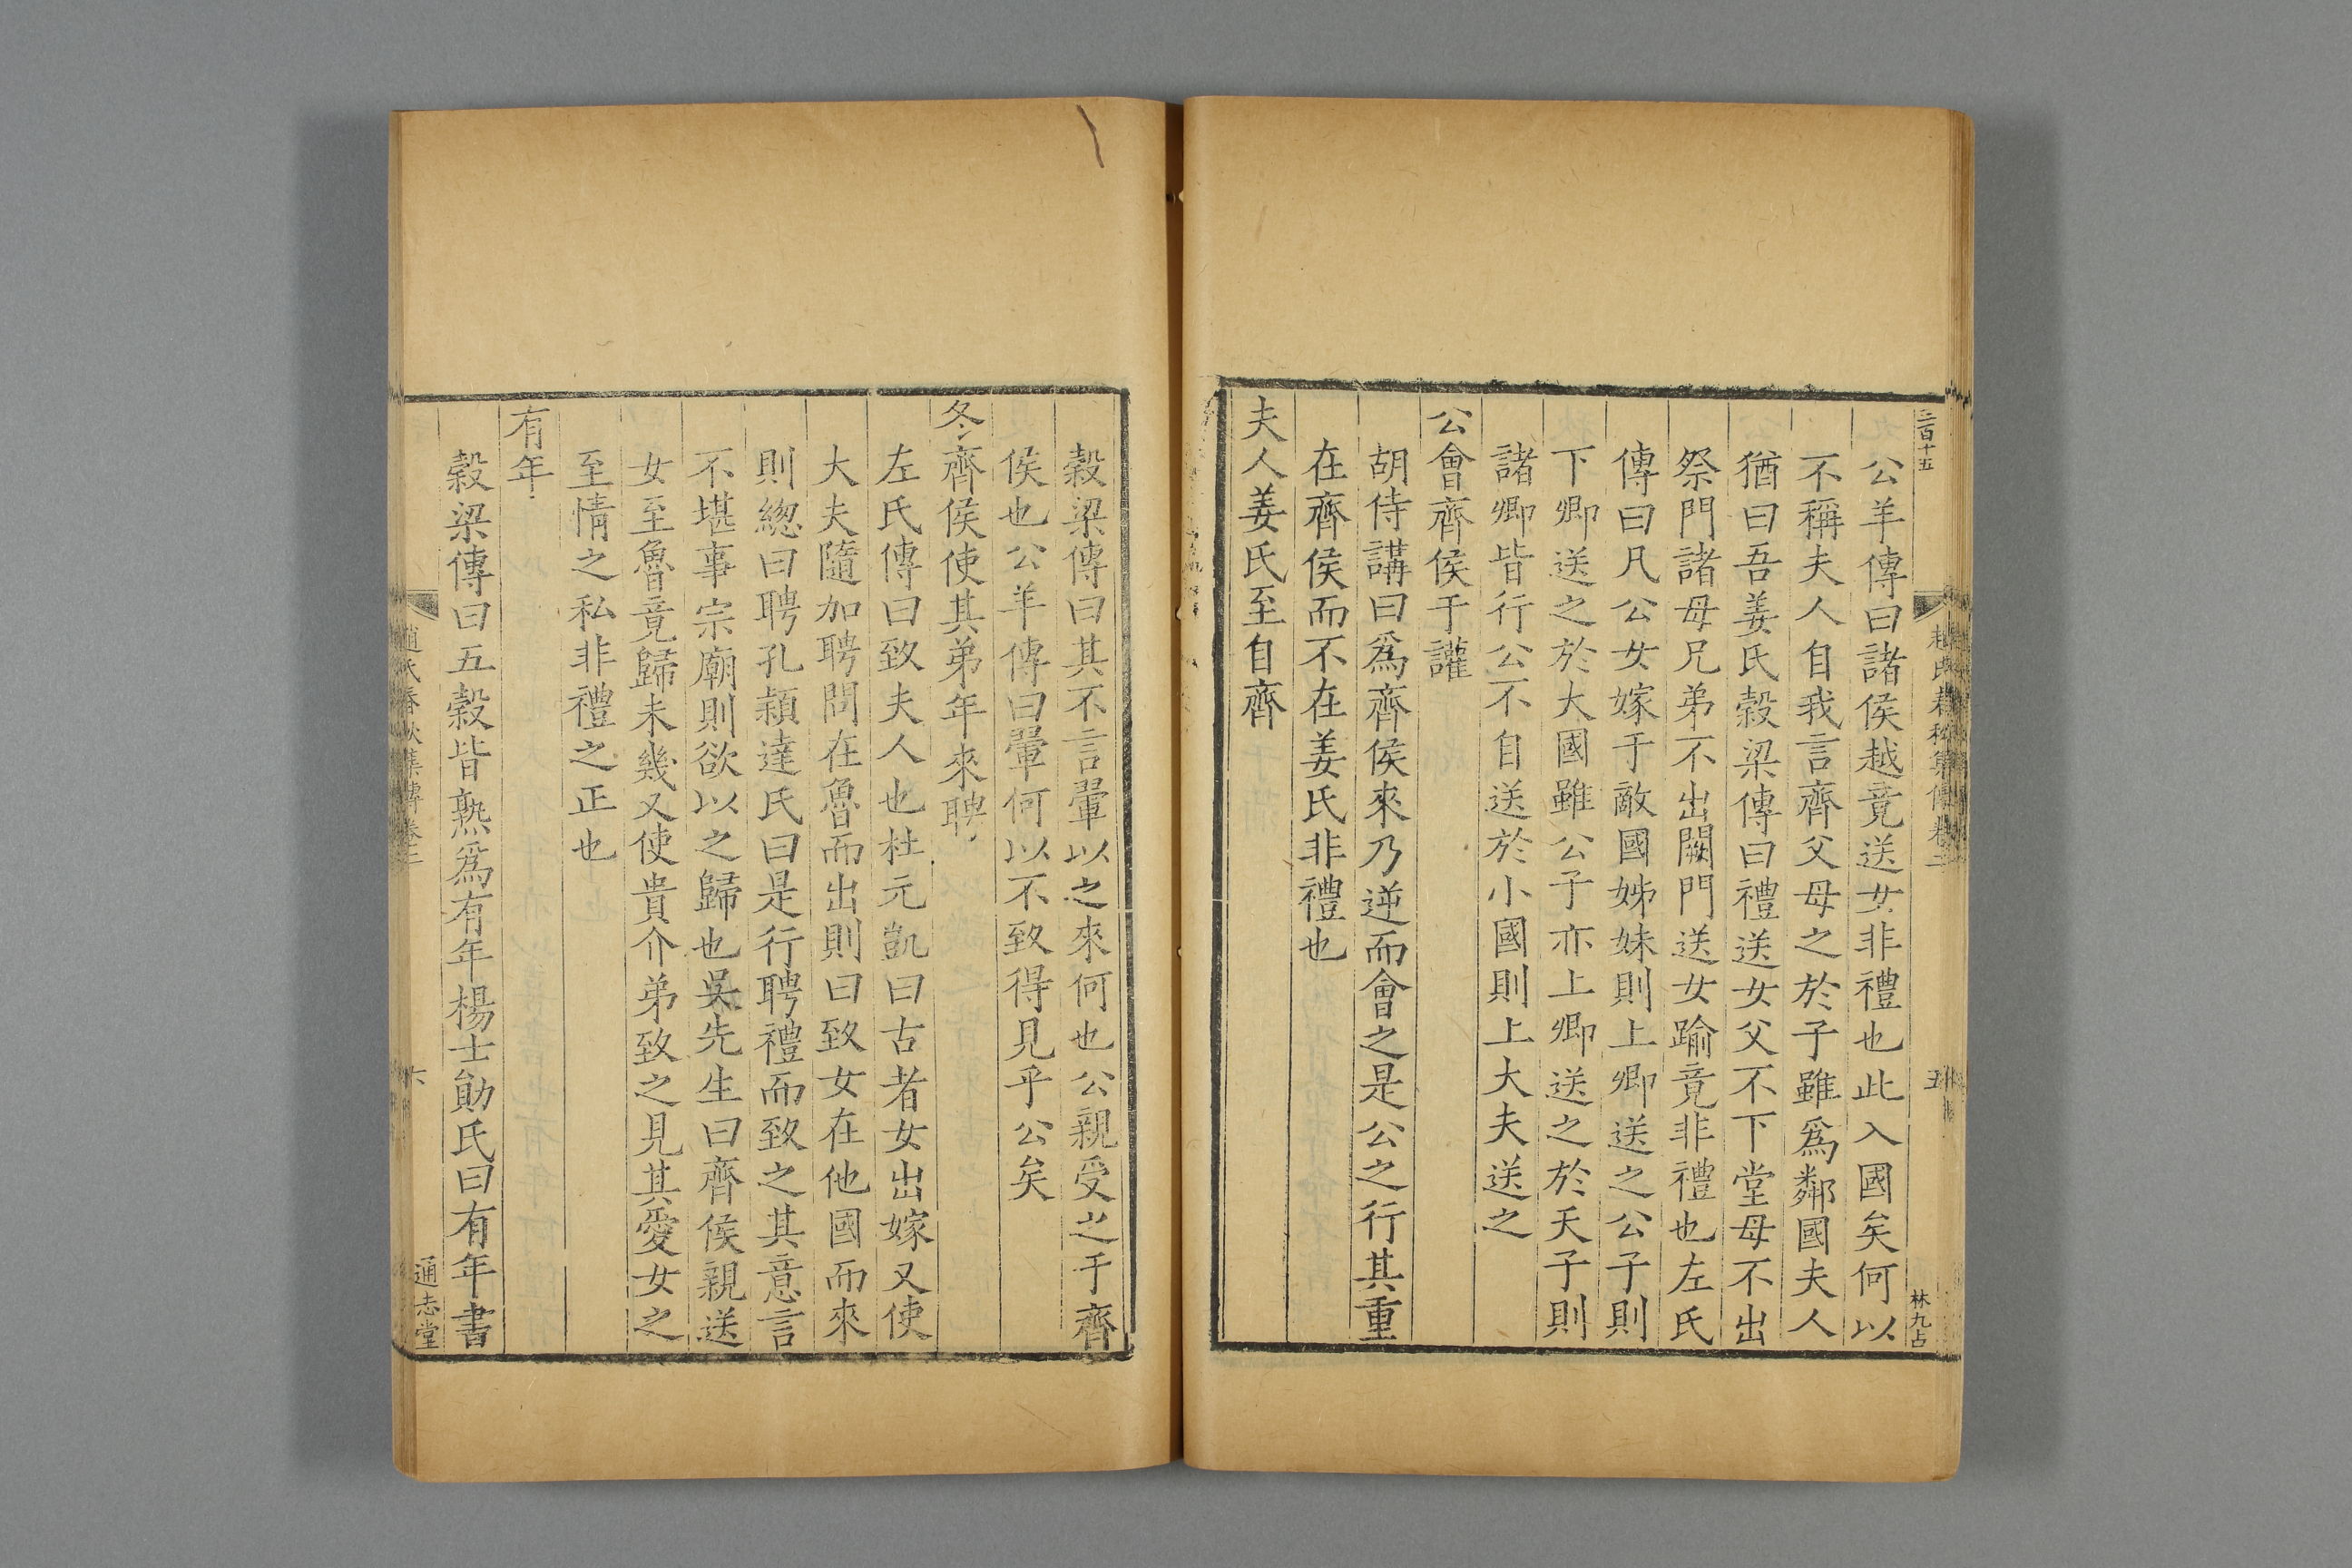 二百十五
趙氏春秋集傳卷二
五
林九占
公羊傳曰諸侯越竟送女非禮也此入國矣何以
不稱夫人自我言齊父母之於子雖爲鄰國夫人
猶曰吾姜氏穀梁傳曰禮送女父不下堂母不出
祭門諸母兄弟不出闕門送女踰竟非禮也左氏
傳曰凡公女嫁于敵國姊妹則上卿送之公子則
下卿送之於大國雖公子亦上卿送之於天子則
諸卿皆行公不自送於小國則上大夫送之
公會齊侯于讙
胡侍講曰爲齊侯來乃逆而會之是公之行其重
在齊侯而不在姜氏非禮也
夫人姜氏至自齊
穀梁傳曰其不言翬以之來何也公親受之于齊
侯也公羊傳曰翬何以不致得見乎公矣
冬齊侯使其弟年來聘
左氏傳曰致夫人也杜元凱曰古者女出嫁又使
大夫隨加聘問在魯而出則曰致女在他國而來
則緫曰聘孔穎達氏曰是行聘禮而致之其意言
不堪事宗廟則欲以之歸也吳先生曰齊侯親送
女至魯竟歸未幾又使貴介弟致之見其愛女之
至情之私非禮之正也
有年
穀梁傳曰五穀皆熟爲有年楊士勛氏曰有年書
趙氏春秋集傳卷二
六
通志堂